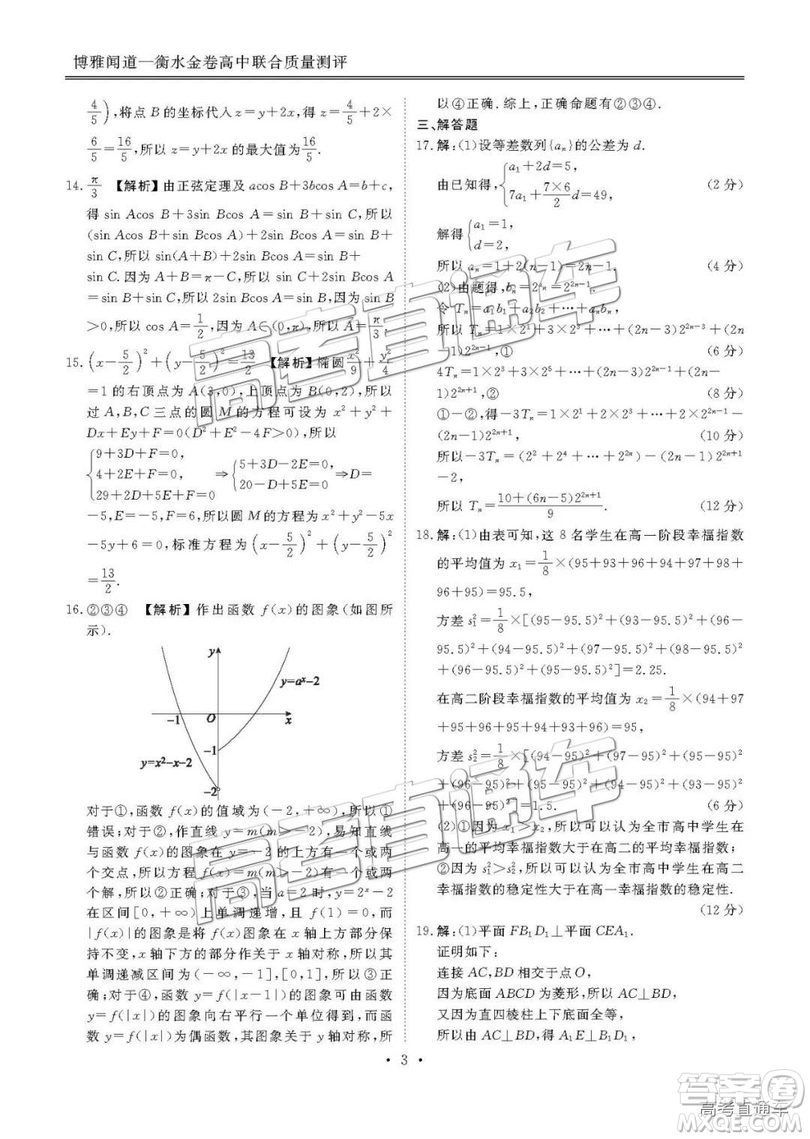 博雅闻道—衡水金卷高中联合质量测评
4/5),将点 B 的坐标代入 z=y+2x,得 z=4/5+2×
6/5=16/5,所以 z=y+2x 的最大值为16/5.
14.π/3 【解析】由正弦定理及 acos B+3bcos A=b+c,
得 sin Acos B+3sin Bcos A=sin B+sin C,所以
(sin Acos B+sin Bcos A)+2sin Bcos A=sin B+
sin C,所以 sin(A+B)+2sin Bcos A=sin B+
sin C.因为 A+B=π-C,所以 2sin Bcos A=sin B
>0,所以 cos A=1/2,因为 A∈(0,π),所以 A=π/3.
15.(x-5/2)²+(y-5/2)²=13/2 【解析】椭圆x²/9+y²/4
=1 的右顶点为 A(3,0),上顶点为 B(0,2),所以
过 A,B,C 三点的圆 M 的方程可设为 x²+y²+
Dx+Ey+F=0(D²+E²-4F>0),所以
{9+3D+F=0, 4+2E+F=0, 29+2D+5E+F=0 ⇒ {5+3D-2E=0, 25+2D+3E=0 ⇒D=
-5,E=-5,F=6,所以圆 M 的方程为 x²+y²-5x
-5y+6=0,标准方程为(x-5/2)²+(y-5/2)²
=13/2.
16.②③④ 【解析】作出函数 f(x)的图象(如图所
示).
y
y=aˣ-2
-1 O x
-1
y=x²-x-2
-2
对于①,函数 f(x)的值域为(-2,+∞),所以①
错误;对于②,作直线 y=m(m>-2),易知直线
与函数 f(x)的图象在 y=-2 的上方有一个或两
个交点,所以方程 f(x)=m(m>-2)有一个或两
个解,所以②正确;对于③,由题意可知函数 f(x)
在区间[0,+∞)上单调递增,且 f(1)=0,而
|f(x)|的图象是将 f(x)图象中在 x 轴上方的图象
保持不变,x 轴下方的部分作关于 x 轴对称,所以其
单调递减区间为(-∞,-1],[0,1],所以③正
确;对于④,函数 f(|x-1|)的图象可看成由
f(|x|)的图象向右平移一个单位得到的,而函
数 y=f(|x|)为偶函数,其图象关于 y 轴对称,所
以④正确.综上,正确命题有②③④.
三、解答题
17.解:(1)设等差数列{aₙ}的公差为 d.
由已知得,{a₁+2d=5, 7a₁+(7×6)/2 d=49, (2 分)
解得{a₁=1, d=2,
所以 aₙ=1+2(n-1)=2n-1. (4 分)
(2)由题得,bₙ=2^(aₙ)=2²ⁿ⁻¹.
令 Tₙ=a₁b₁+a₂b₂+…+aₙbₙ,
所以 Tₙ=1×2¹+3×2³+…+(2n-3)2²ⁿ⁻³+(2n
-1)2²ⁿ⁻¹,① (6 分)
4Tₙ=1×2³+3×2⁵+…+(2n-3)2²ⁿ⁻¹+(2n-
1)2²ⁿ⁺¹,② (8 分)
①-②,得-3Tₙ=1×2¹+2×2³+…+2×2²ⁿ⁻¹-
(2n-1)2²ⁿ⁺¹, (10 分)
所以-3Tₙ=(2²+2⁴+…+2²ⁿ)-(2n-1)2²ⁿ⁺¹
-2,
所以 Tₙ=(10+(6n-5)2²ⁿ⁺¹)/9. (12 分)
18.解:(1)由表可知,这 8 名学生在高一阶段幸福指数
的平均值为 x₁=1/8×(95+93+96+94+97+98+
96+95)=95.5,
方差 s₁²=1/8×[(95-95.5)²+(93-95.5)²+(96-
95.5)²+(94-95.5)²+(97-95.5)²+(98-95.5)²
+(96-95.5)²+(95-95.5)²]=2.25.
在高二阶段幸福指数的平均值为 x₂=1/8×(94+97
+95+96+95+94+93+96)=95,
方差 s₂²=1/8×[(94-95)²+(97-95)²+(95-95)²
+(96-95)²+(95-95)²+(94-95)²+(93-95)²
+(96-95)²]=1.5. (6 分)
(2)①因为 x₁>x₂,所以认为全市高中学生在
高一幸福指数大于在高二的平均幸福指数.
②因为 s₁²>s₂²,所以认为全市高中学生在高二
幸福指数的稳定性大于在高一幸福指数的稳定性.
(12 分)
19.解:(1)平面 FB₁D₁⊥平面 CEA₁.
证明如下:
连接 AC,BD 相交于点 O,
因为底面 ABCD 为菱形,所以 AC⊥BD,
又因为直四棱柱上下底面全等,
所以由 AC⊥BD,得 AC⊥B₁D₁,
• 3 •
高考直通车
高考直通车
答案圈
高考直通车
MXQE.COM